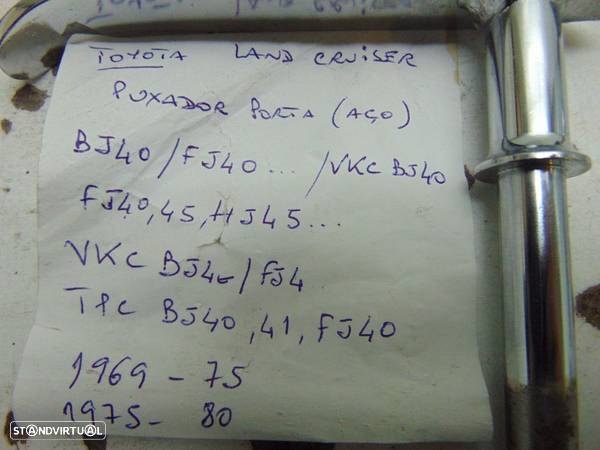 TOYOTA LAND CRUISER
PUXADOR PORTA (AÇO)
BJ40 / FJ40... / VKC BJ40
FJ40, 45, HJ45...
VKC BJ40 / FJ4
TPC BJ40, 41, FJ40
1969 - 75
1975 - 80
STANDVIRTUAL